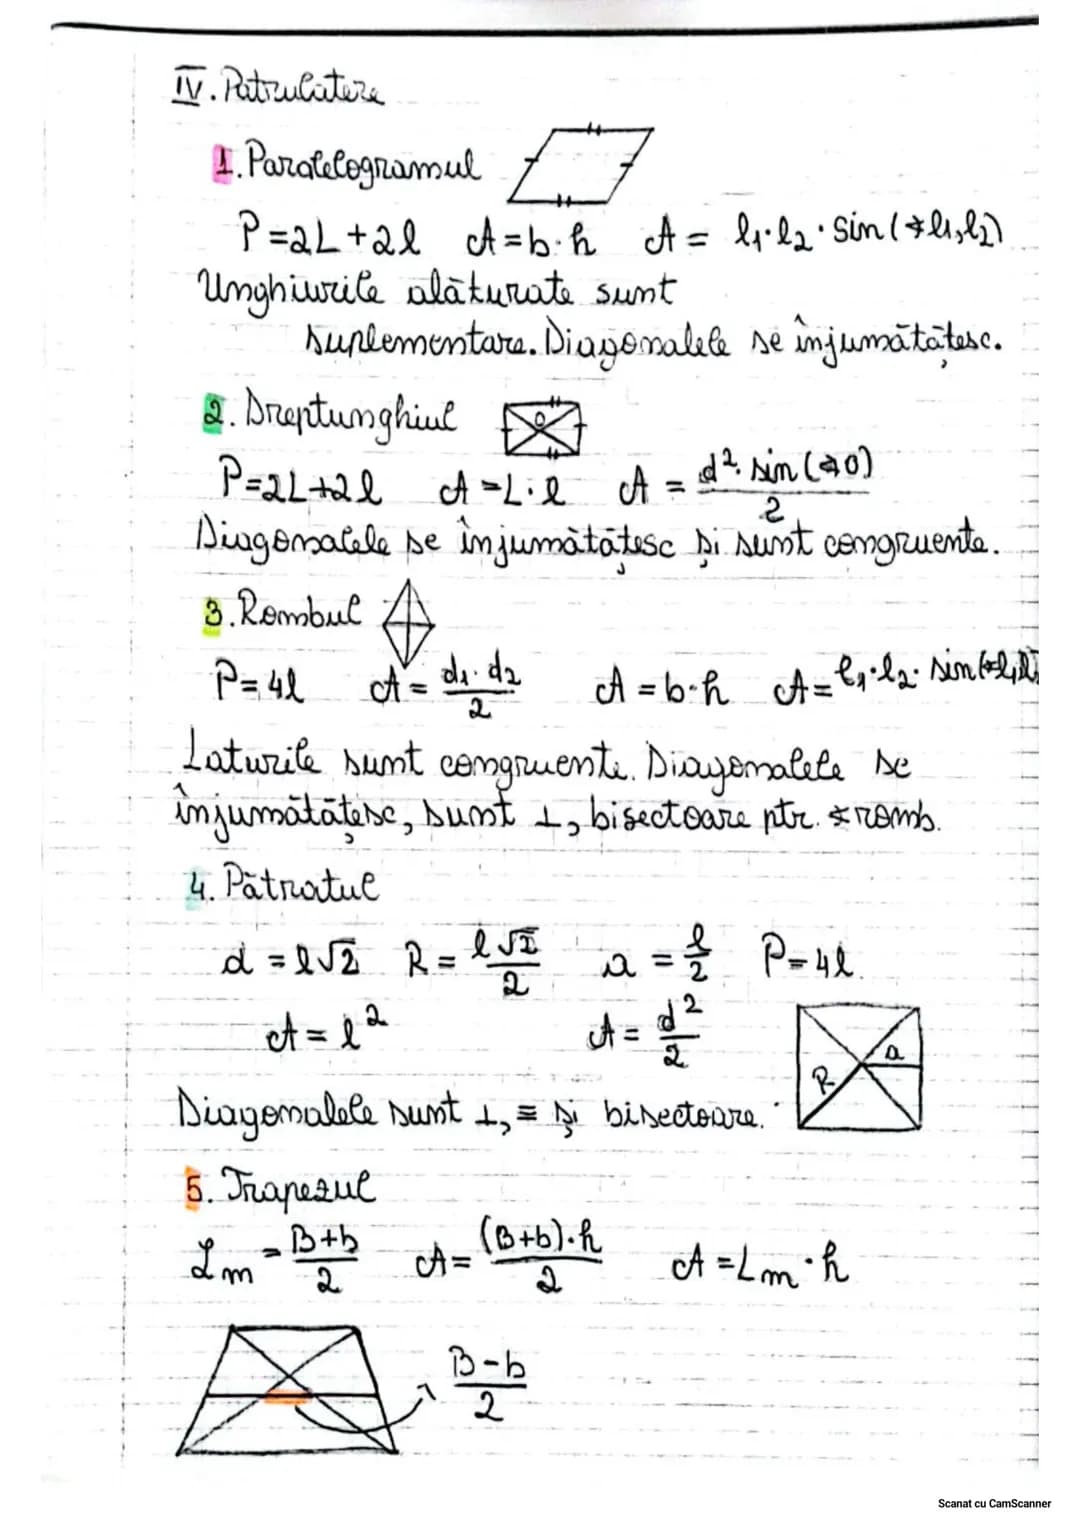 IV. Patrulatere
1. Paralelogramul
P=2L+2l A=b·h A= l₁·l₂·sin(∢l₁,l₂)
Unghiurile alăturate sunt
suplementare. Diagonalele se înjumătățesc.
2. Dreptunghiul
O
P=2L+2l A=L·l A = d²·sin(∢O)/2
Diagonalele se înjumătățesc și sunt congruente.
3. Rombul
P=4l A= d₁·d₂/2 A=b·h A=l₁·l₂·sin(∢l₁,l₂)
Laturile sunt congruente. Diagonalele se
înjumătățesc, sunt ⊥, bisectoare ptr. ∢romb.
4. Pătratul
d=l√2 R= l√2/2 a= l/2 P=4l.
A=l² A= d²/2
a
R
Diagonalele sunt ⊥, ≡ și bisectoare.
5. Trapezul
Lm = B+b/2 A= (B+b)·h/2 A=Lm·h
B-b/2
Scanat cu CamScanner